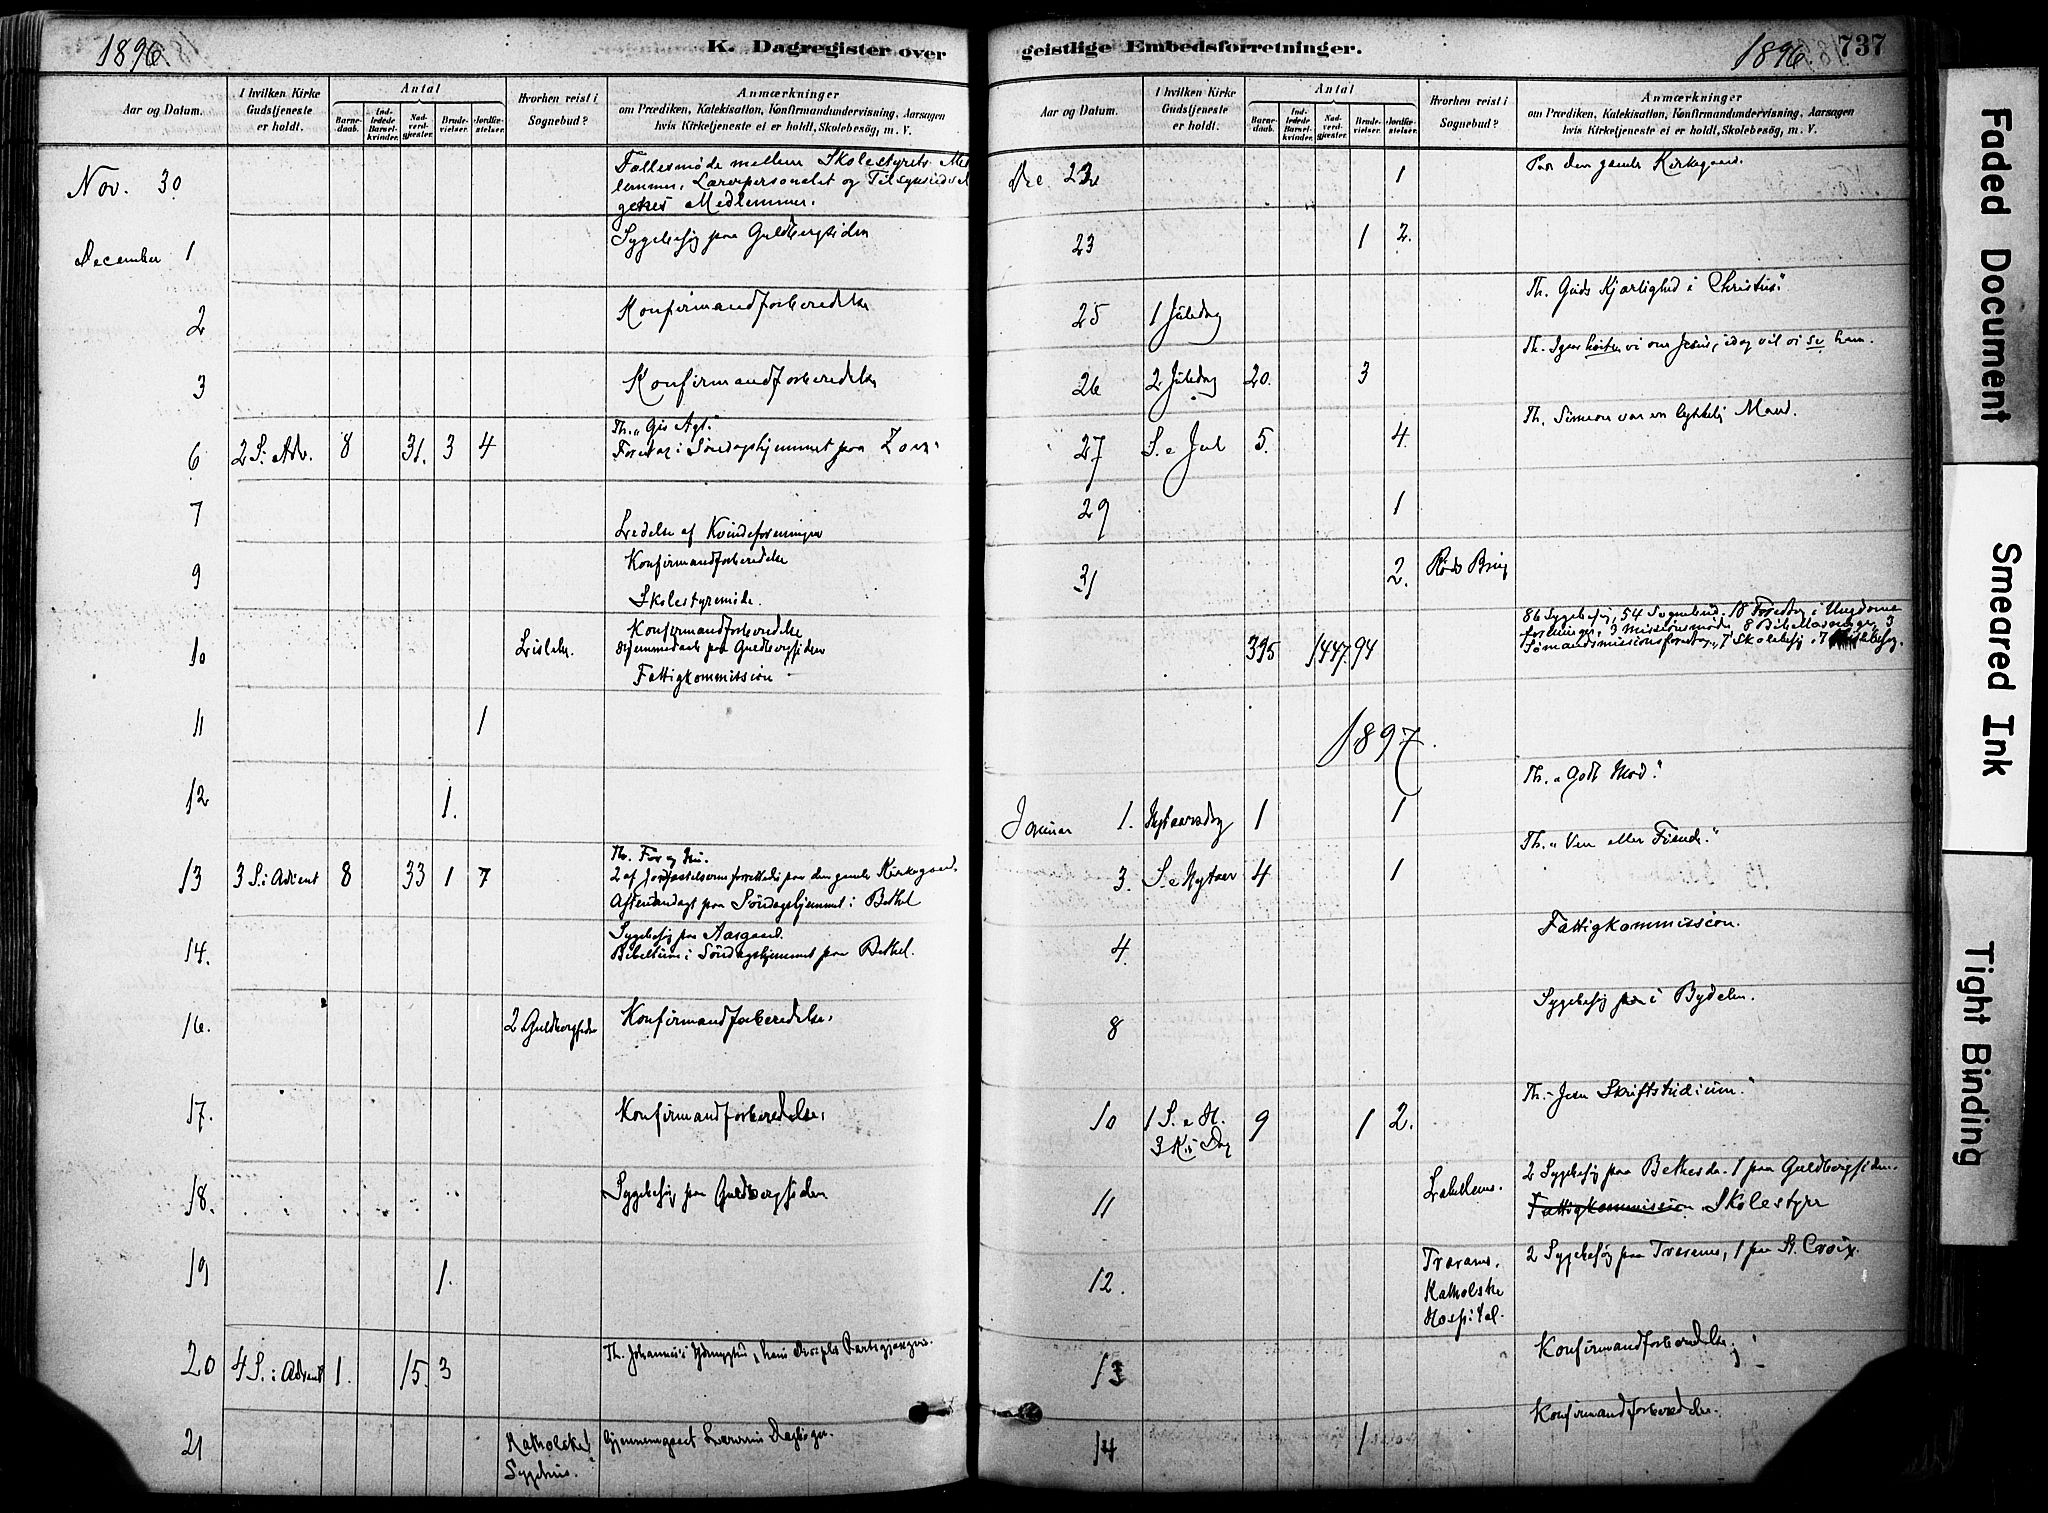 1896
K. Dagregister over
Aar og Datum.
I hvilken Kirke Gudstjeneste er holdt.
Antal
Barne-daab.
Ind-ledede Barsel-kvinder.
Nad-verd-gjester.
Brude-vielser.
Jordfæ-stelser.
Hvorhen reist i Sognebud?
Anmærkninger
om Prædiken, Katekisation, Konfirmandundervisning, Aarsagen
hvis Kirketjeneste ei er holdt, Skolebesög, m. V.
Nov. 30. Fællesmøde mellem Skolestyrets Med
lemmer, Lærerpersonalet og Tilsynsudval
genes Medlemmer.
December 1 Sygebesøg paa Guldbergsiden
2 Konfirmandforberedelse
3 Konfirmandforberedelse
Th.
6 2 S. i Adv. 8 31. 3 4 Foredrag i Søndagshjemmet paa Zion.
7 Ledelse af Kvindeforeningen
9 Konfirmandforberedelse
Skolestyremøde.
10 Konfirmandforberedelse
paa Guldbergsiden
Fattigkommission
11 1
12 1.
Th. Før og Nu.
13 3 S. i Advent 8 33 1 7 2 af Jordfæstelserne forrettedes paa den gamle Kirkegaard.
Aftenandagt paa Søndagshjemmet i Bethel
14. Sygebesøg paa Aasgaard.
Bibeltime i Søndagshjemmet paa Bethel.
16. 2 Guldbergsiden Konfirmandforberedelse.
17. Konfirmandforberedelse.
18. Sygebesøg paa Guldbergsiden
19 1.
20 4 S. i Advent 1. 15. 3 Th. Johannes's Ydmyghed, hans Disciples
21 Katholske Sygehus. Gjennemgaaet Lærernes Dagbøger.
geistlige Embedsforretninger.
1896. 737
Aar og Datum.
I hvilken Kirke Gudstjeneste er holdt.
Antal
Barne-daab.
Ind-ledede Barsel-kvinder.
Nad-verd-gjester.
Brude-vielser.
Jordfæ-stelser.
Hvorhen reist i Sognebud?
Anmærkninger
om Prædiken, Katekisation, Konfirmandundervisning, Aarsagen
hvis Kirketjeneste ei er holdt, Skolebesög, m. V.
Dec 1 Paa den gamle Kirkegaard.
23 1 2.
25 1 Juledag Th. Guds Kjærlighed i Christus."
26 2 Juledag 20. 3 Th. Igaar hørte vi om Jesus, idag vil vi se ham.
27 S. e Jul 5. 4. Th. Simeon var en lykkelig Mand.
29 1
31 2. Røds Brug
395 1447. 94 86 Sygebesøg, 54 Sognebud. 18 Foredrag i Ungdoms
foreninger, 3 Missionsmøder 8 3
Sømandsmissionsforedrag, 7 Skolebesøg
1897.
Januar 1. Nytaarsdag 1 1 Th. "Godt Mod."
3. S. e Nytaar 4 1 Th. "Ven eller Fiende."
4. Fattigkommission.
8 Sygebesøg i Bydelen.
10 1 S. e H. 9 1 2. Th. Jesu Skriftstudium."
3 K. Dag
11 2 Sygebesøg paa Bethesda. 1 paa Guldbergsiden.
Fattigkommission Skolestyre
12. Traranes, Katholske Hospital. 2 Sygebesøg paa Traranes, 1 paa St. Croix.
13 Konfirmandforberedelse
14 1 Konfirmandforberedelse.
Faded Document
Smeared Ink
Tight Binding